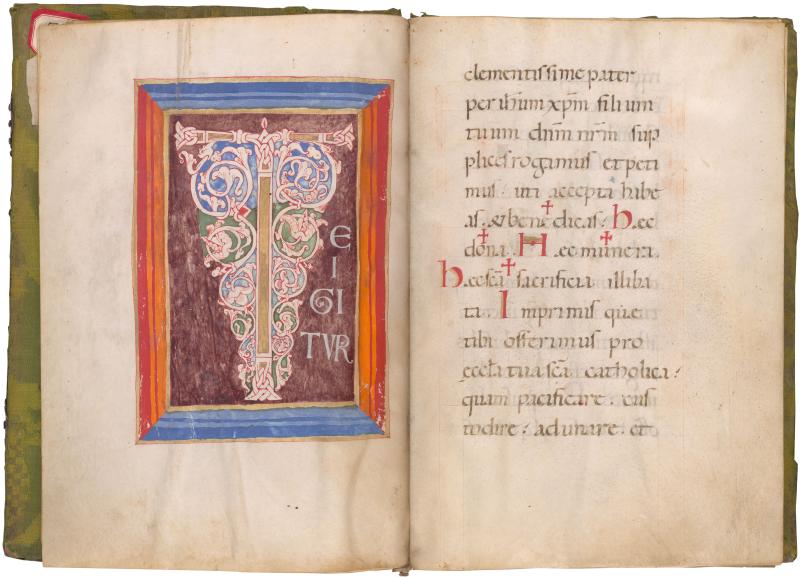 TE
IGI
TVR
clementissime pater
per ih̄um xp̄m filium
tuum dn̄m nr̄m sup
plices rogamus et peti
mus· uti accepta habe
as. & bene✝dicas. hec
do✝na. Hec mu✝nera.
hec sc̄a✝ sacrificia illiba
ta. Imprimis que
tibi offerimus pro
eccl̄a tua sc̄a catholica·
quam pacificare. cus
todire· adunare· et